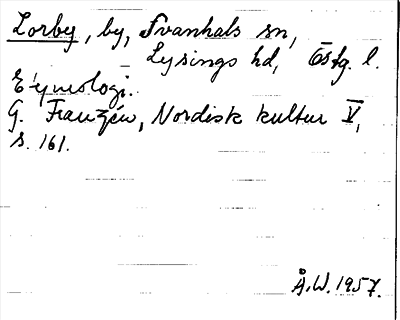 Lorby, by, Svanhals sn,
Lysings hd, Östg. l.
Etymologi.
G. Franzén, Nordisk kultur V,
s. 161.
Å.W. 1957.